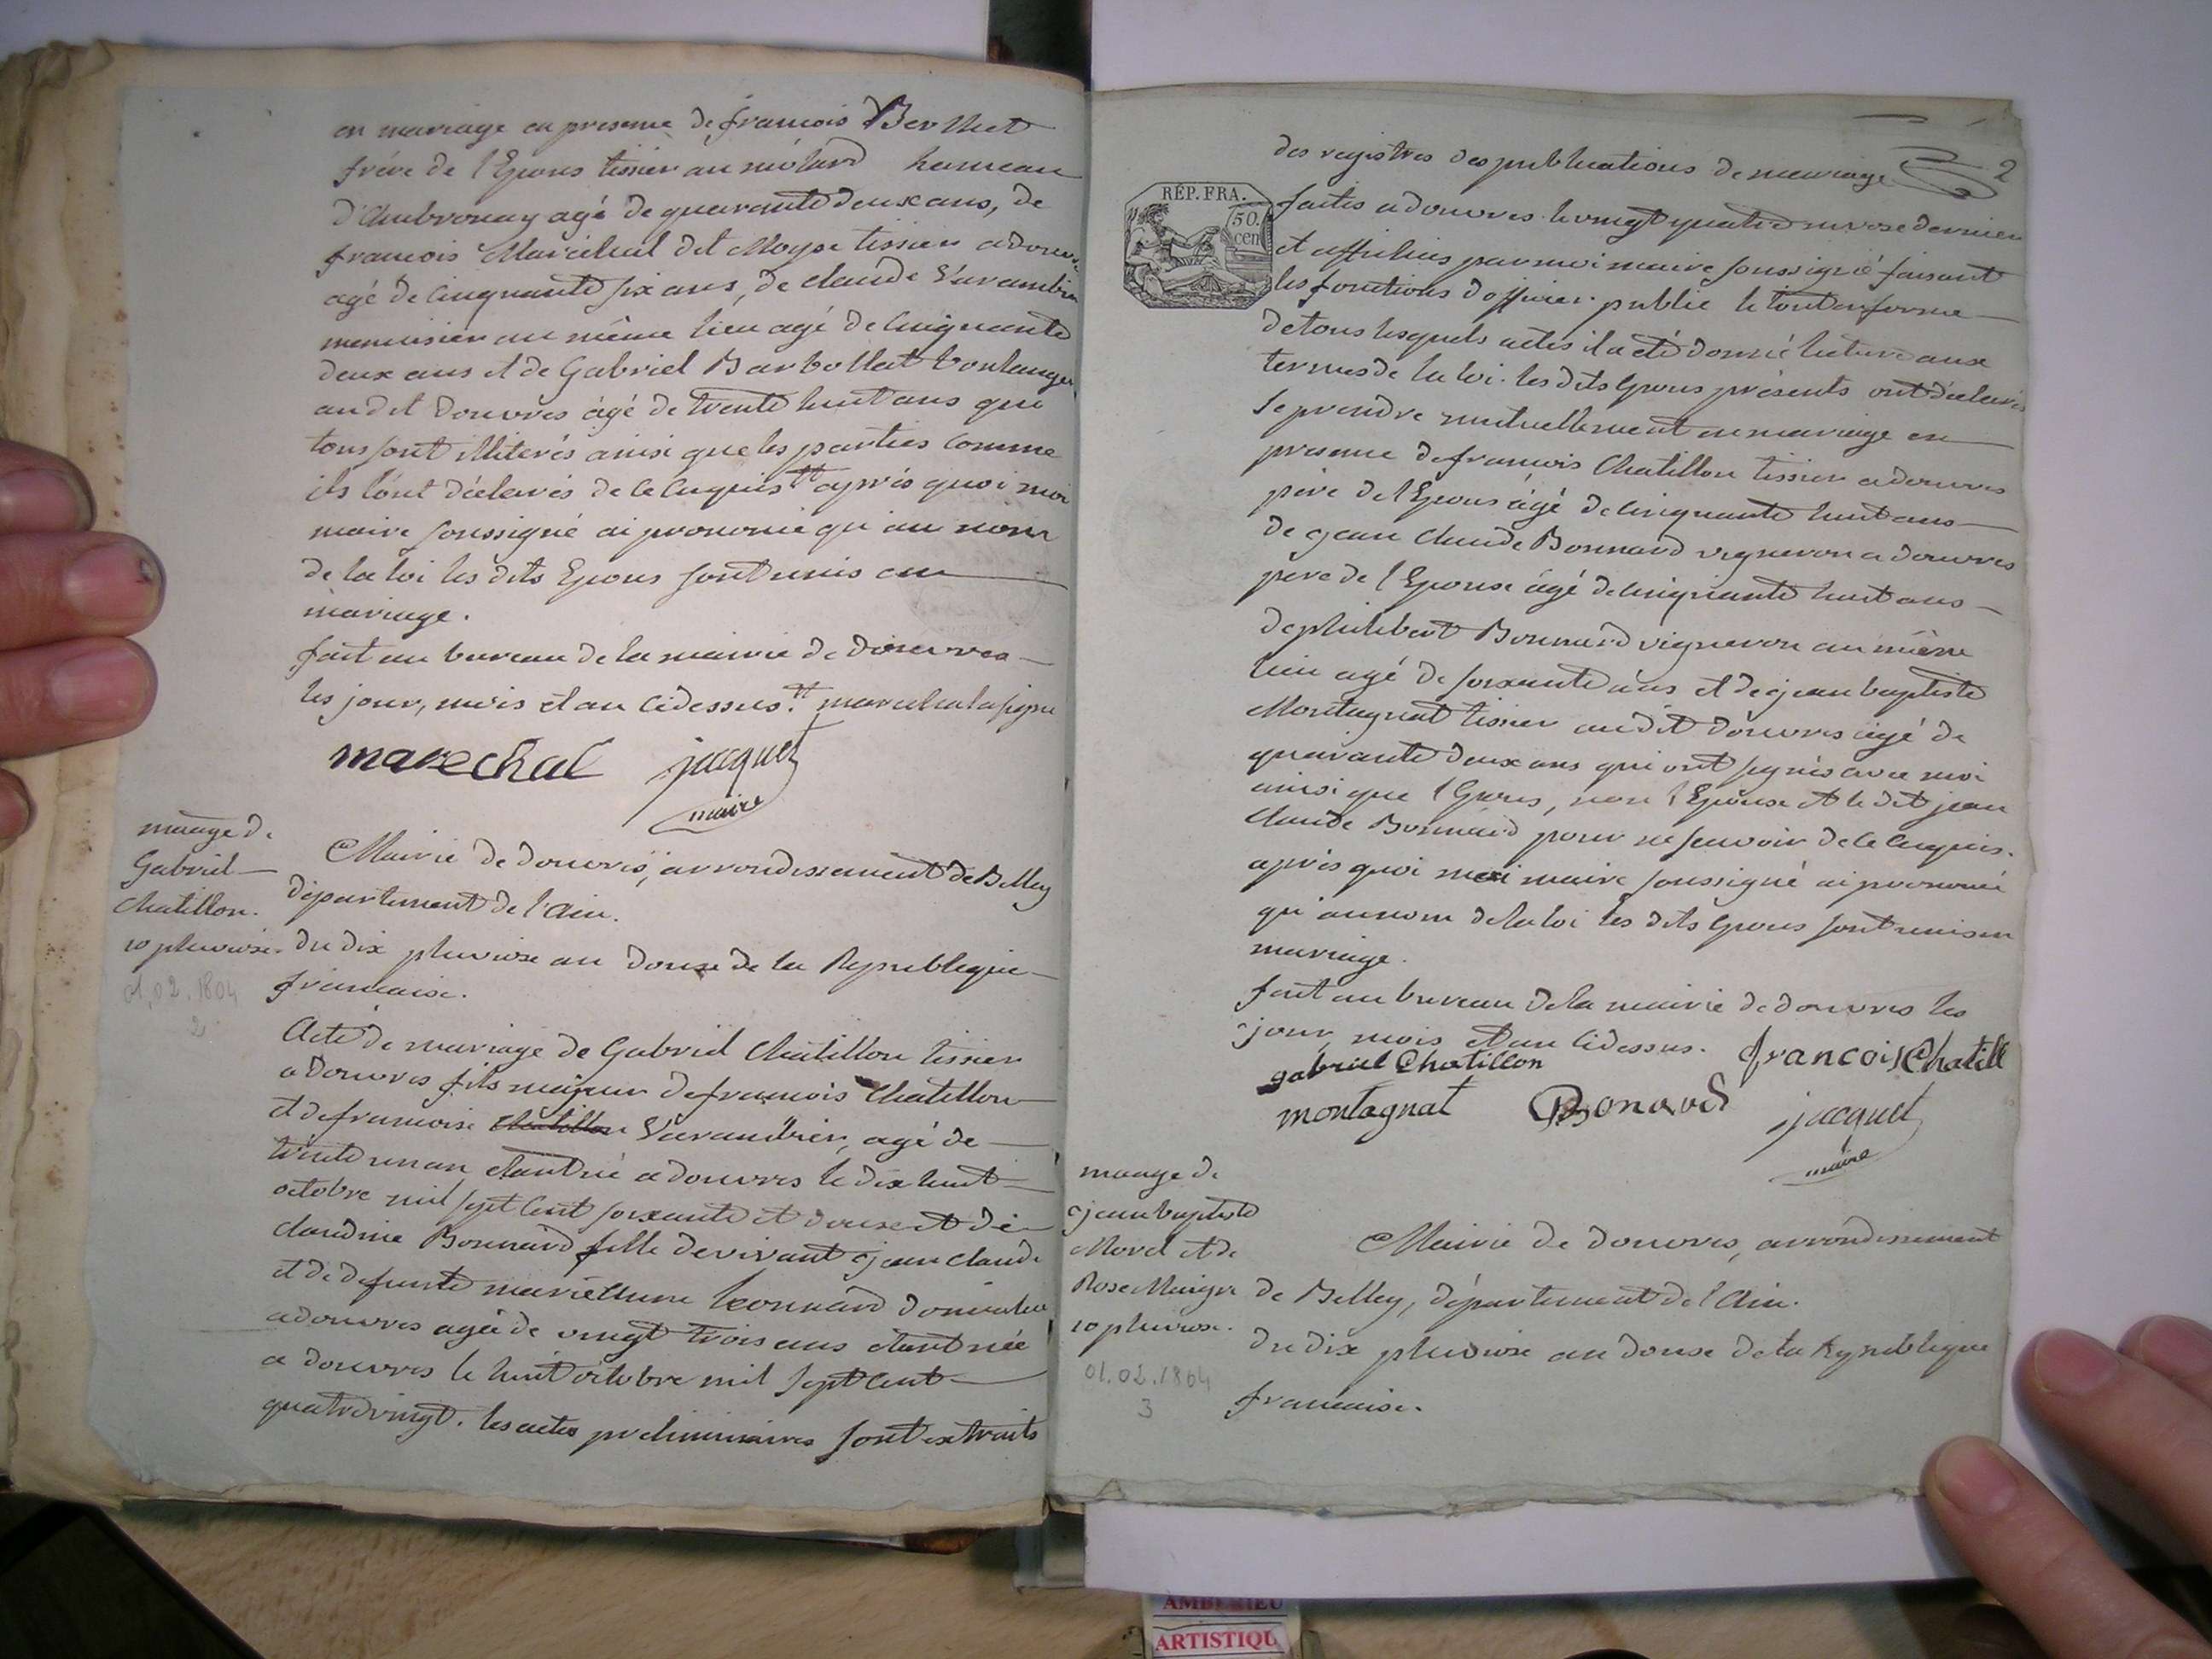 en mariage en presence de françois Berthet
frère de l'Epous tissier au molard hameau
d'Ambronay agé de quarante deux ans, de
françois Maréchal dit Moyse tissier a douvres
agé de cinquante six ans, de claude Varambier
menuisier au même lieu agé de cinquante
deux ans et de Gabriel Barbollat boulanger
audit Douvres âgé de trente huit ans qui
tous sont illiterés ainsi que les parties comme
ils l'ont déclarés de ce enquis tt après quoi moi
maire soussigné ai prononcé qu'au nom
de la loi les dits Epous sont unis en
mariage.
fait au bureau de la mairie de douvres
les jour, mois et an cidessus. tt marechal a signé
marechal jacquet
maire
mariage de
Gabriel
Chatillon.
10 pluviose.
01.02.1804
2
Mairie de douvres, arrondissement de Belley
département de l'Ain.
du dix pluviose an douze de la Republique
francaise.
Acte de mariage de Gabriel Chatillon tissier
a douvres fils majeur de françois Chatillon
et de francoise Chatillon Varambier, agé de
trente un an etant né a douvres le dix huit
octobre mil sept cent soixante et douse et de
claudine Bonnard fille de vivant jean claude
et de defunte marie Anne Leonnard domiciliée
a douvres agée de vingt trois ans etant née
a douvres le huit octobre mil sept cent
quatrevingt. les actes preliminaires sont extraits
2
RÉP. FRA.
50.
cen
des registres des publications de mariage
faites a douvres le vingt quatre nivose dernier
et affichées par moi maire soussigné faisant
les fonctions d'officier public le tout en forme
de tous lesquels actes il a été donné lecture aux
termes de la loi. les dits Epous présents ont déclarés
se prendre mutuellement en mariage en
presence de francois Chatillon tissier a douvres
père de l'Epous âgé de cinquante huit ans
de jean Claude Bonnard vigneron a douvres
pere de l'Epouse âgé de cinquante huit ans
de philibert Bonnard vigneron au même
lieu agé de soixante ans et de jean baptiste
Montagnat tissier audit douvres âgé de
quarante deux ans qui ont signés avec moi
ainsi que l'Epous, non l'Epouse et le dit jean
Claude Bonnard pour ne scavoir de ce enquis.
après quoi moi maire soussigné ai prononcé
qu'au nom de la loi les dits Epous sont unis en
mariage.
fait au bureau de la mairie de douvres les
jour, mois et an cidessus.
gabriel Chatillon francois Chatill
montagnat Bonard jacquet
maire
mariage de
jean baptiste
Morel et de
Rose Maigre
10 pluviose.
01.02.1804
3
Mairie de douvres, arrondissement
de Belley, département de l'Ain.
du dix pluviose an douse de la Republique
francaise.
AMBERIEU
ARTISTIQU